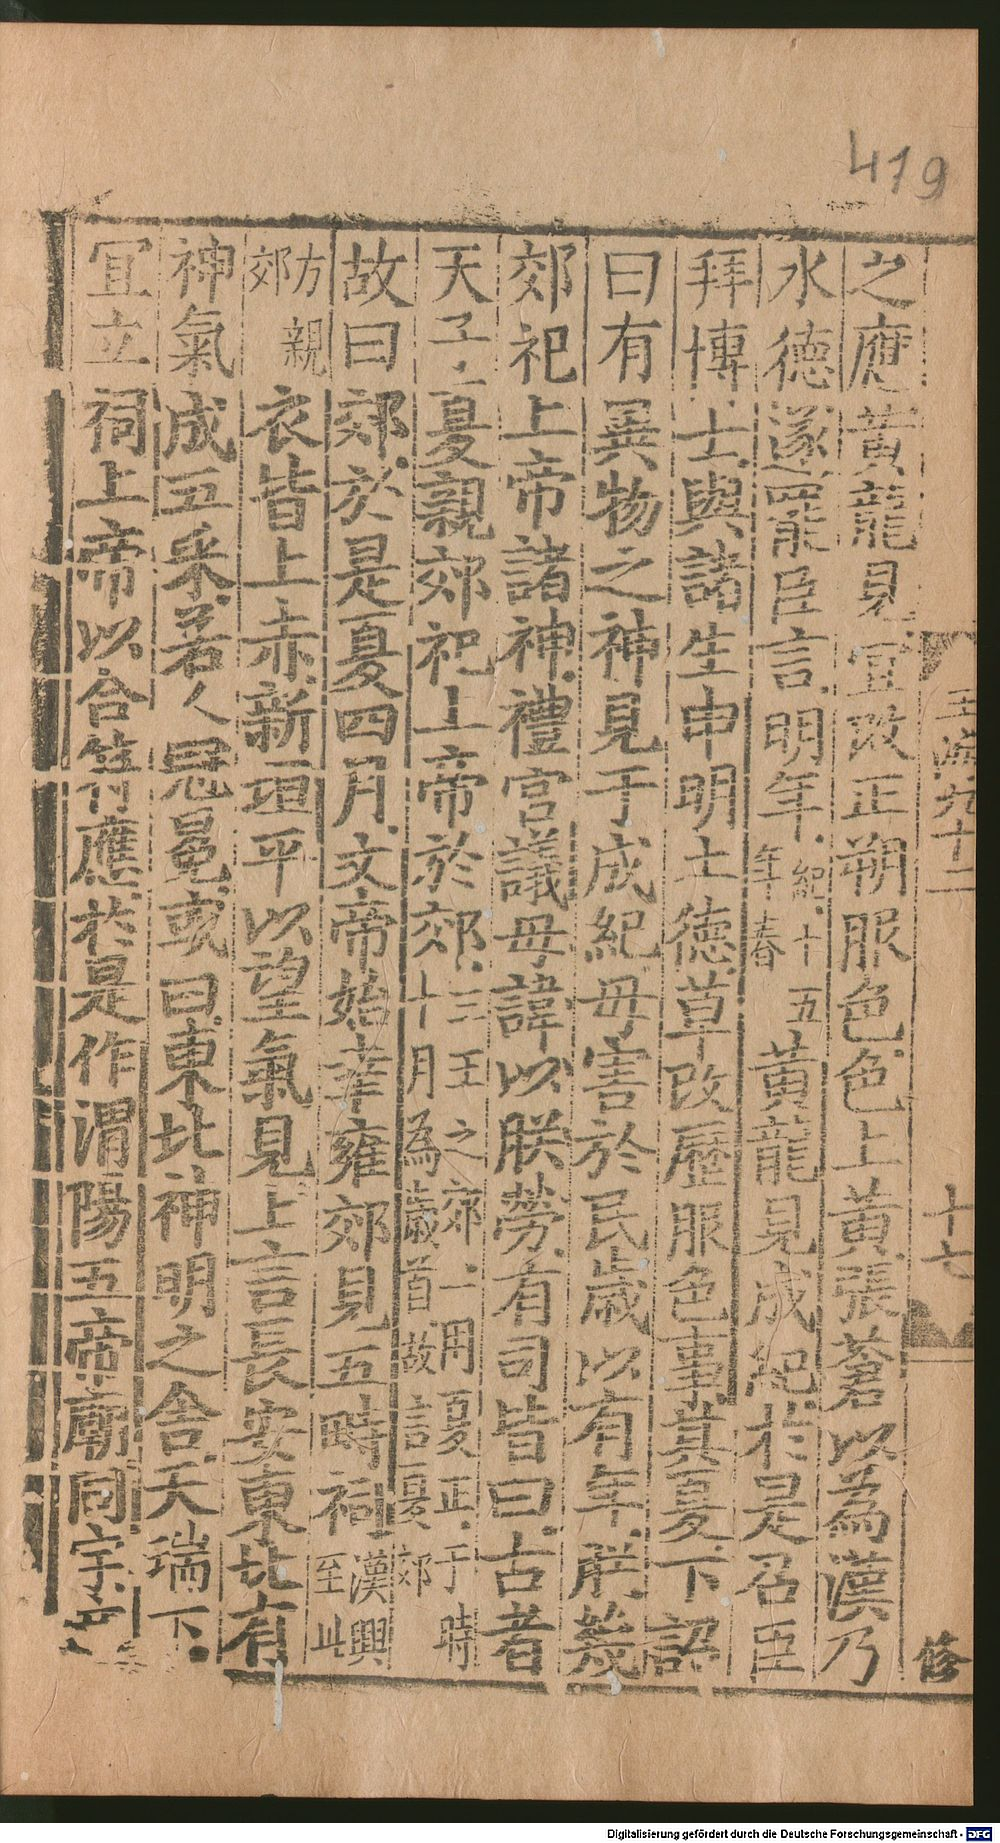 419
玉海九十二
十七
修
之應黃龍見宜改正朔服色色上黃張蒼以為漢乃
水德遂罷臣言明年紀十五年春黃龍見成紀於是召臣
拜博士與諸生申明土德草改歷服色事其夏下詔
曰有異物之神見于成紀毋害於民歲以有年朕幾
郊祀上帝諸神禮官議毋諱以朕勞有司皆曰古者
天子夏親郊祀上帝於郊三王之郊一用夏正于時十月為歲首故言夏郊
故曰郊於是夏四月文帝始幸雍郊見五畤祠漢興至此
方親郊衣皆上赤新垣平以望氣見上言長安東北有
神氣成五采若人冠冕或曰東北神明之舍天瑞下
宜立祠上帝以合符應於是作渭陽五帝廟同宇
Digitalisierung gefördert durch die Deutsche Forschungsgemeinschaft - DFG